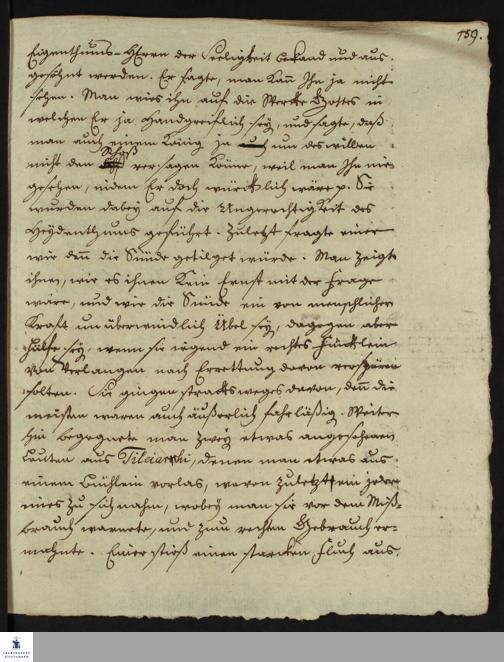 159.
Eigenthums-Herrn der Seeligkeit bekand und aus-
gesöhnt werden. Er sagte, man kan Ihn ja nicht
sehen. Man wies ihn auf die Wercke Gottes in
welchen Er ja handgreiflich sey, und sagte, daß
man auch einem König ja um des willen
nicht den versagen könne, weil man Ihn nie
gesehen, indem Er doch würcklich wäre p. Sie
wurden dabey auf die Ungerechtigkeit des
Heydenthums geführt. Zuletzt fragte einer
wie den die Sünde getilget würde. Man zeigte
ihnen, wie es ihnen kein Ernst mit der Frage
wäre, und wie die Sünde ein von menschlicher
Krafft unüberwindlich Übel sey, dagegen aber
Hülfe sey, wenn sie irgend ein rechtes Füncklein
von Verlangen nach Errettung davon verspüren
solten. Sie gingen stracks weges davon, denn die
meisten waren auch äußerlich fahrläßig. Weiter
hin begegnete man zwey etwas angesehenen
Leuten aus Tilciarhi, denen man etwas aus
einem Büchlein vorlas, wovon zuletzt ein jeder
eines zu sich nahm, wobey man sie vor dem Miß-
brauch warnete, und zum rechten Gebrauch er-
mahnte. Einer stieß einen starcken Fluch aus,
FRANCKESCHE
STIFTUNGEN